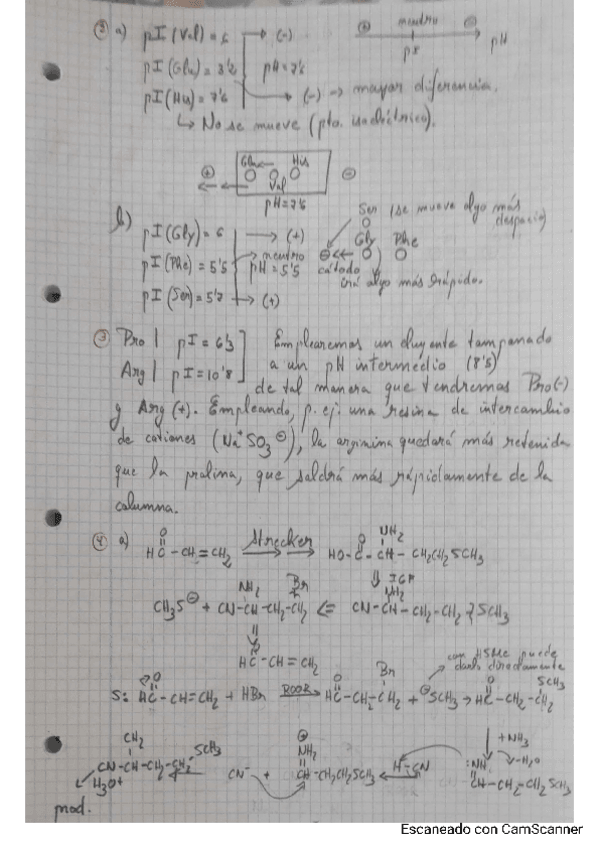 ② a) pI (Val) = 6 → (-) ⊕ neutro ⊖
pI pH
pI (Glu) = 3'2 pH = 7'6
pI (His) = 7'6 → (-) → mayor diferencia.
↳ No se mueve (pto. isoeléctrico).
⊕ Glu ← Val His ⊖
pH = 7'6
b) pI (Gly) = 6 → (+)
pI (Phe) = 5'5 → neutro pH = 5'5
pI (Ser) = 5'7 → (+)
Ser (se mueve algo más despacio)
Gly Phe
⊖ ←
cátodo
irá algo más rápido.
③ Pro | pI = 6'3 Emplearemos un eluyente tamponado
Arg | pI = 10'8 a un pH intermedio (8'5)
de tal manera que tendremos Pro(-)
y Arg (+). Empleando, p. ej: una resina de intercambio
de cationes (Na⁺ SO₃ ⊖), la arginina quedará más retenida
que la prolina, que saldrá más rápidamente de la
columna.
④ a) HC(=O) - CH = CH₂ Strecker →→ HO-C(=O) - CH(NH₂) - CH₂CH₂SCH₃
⇓ IGF
CH₃S⊖ + CN-CH(NH₂)-CH₂-CH₂Br ⇐ CN-CH(NH₂)-CH₂-CH₂ SCH₃
⇓
HC(=O) - CH = CH₂
con HSMe puede
darse directamente
S: HC(=O) - CH = CH₂ + HBr ROOR → HC(=O) - CH₂ - CH₂Br + ⊖SCH₃ → HC(=O) - CH₂ - CH₂ SCH₃
+ NH₃
- H₂O
CN-CH-CH₂-CH₂ SCH₃ ← CN⁻ + CH(=NH₂⊕)-CH₂CH₂SCH₃ ← H-CN :NH=CH-CH₂-CH₂SCH₃
H₃O⁺
prod.
Escaneado con CamScanner